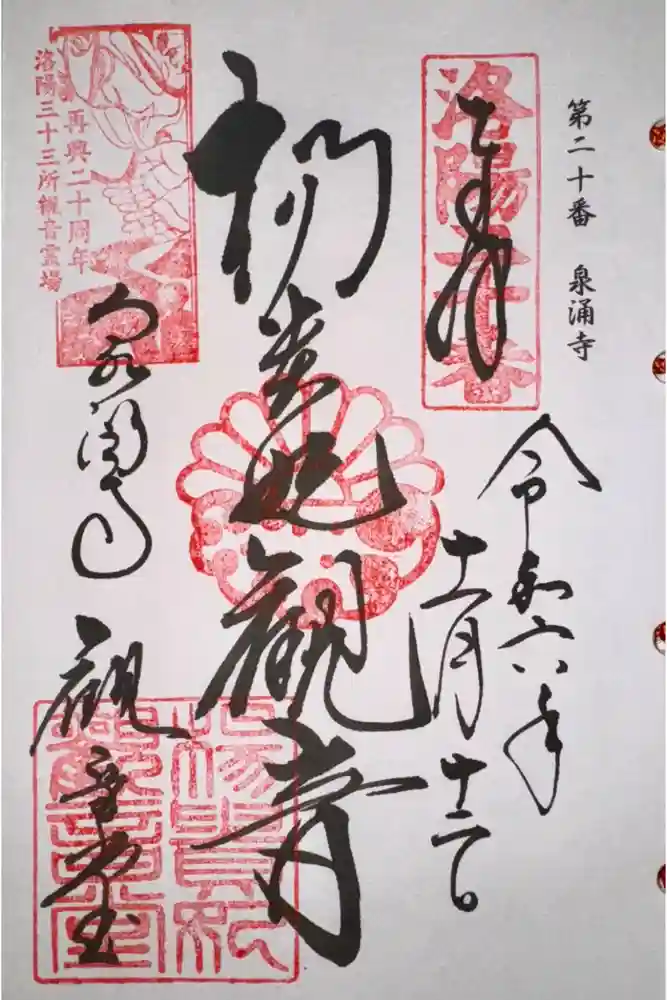 第二十番 泉涌寺
奉拝
洛陽二十番
令和六年
十一月十二日
楊貴妃観音
再興二十周年
洛陽三十三所観音霊場
泉涌寺
観音堂
楊貴妃
観音堂